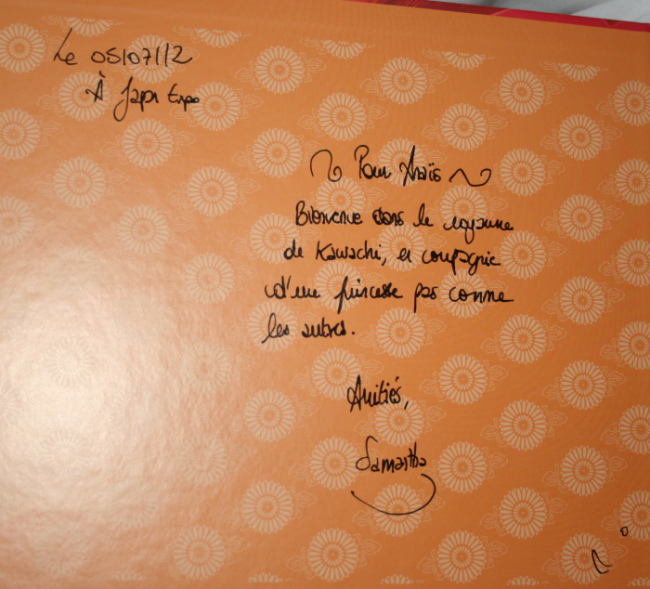 Le 05/07/12
À Japan Expo
Pour Anaïs
Bienvenue dans le royaume
de Kawachi, en compagnie
d'une princesse pas comme
les autres.
Amitiés,
Samantha